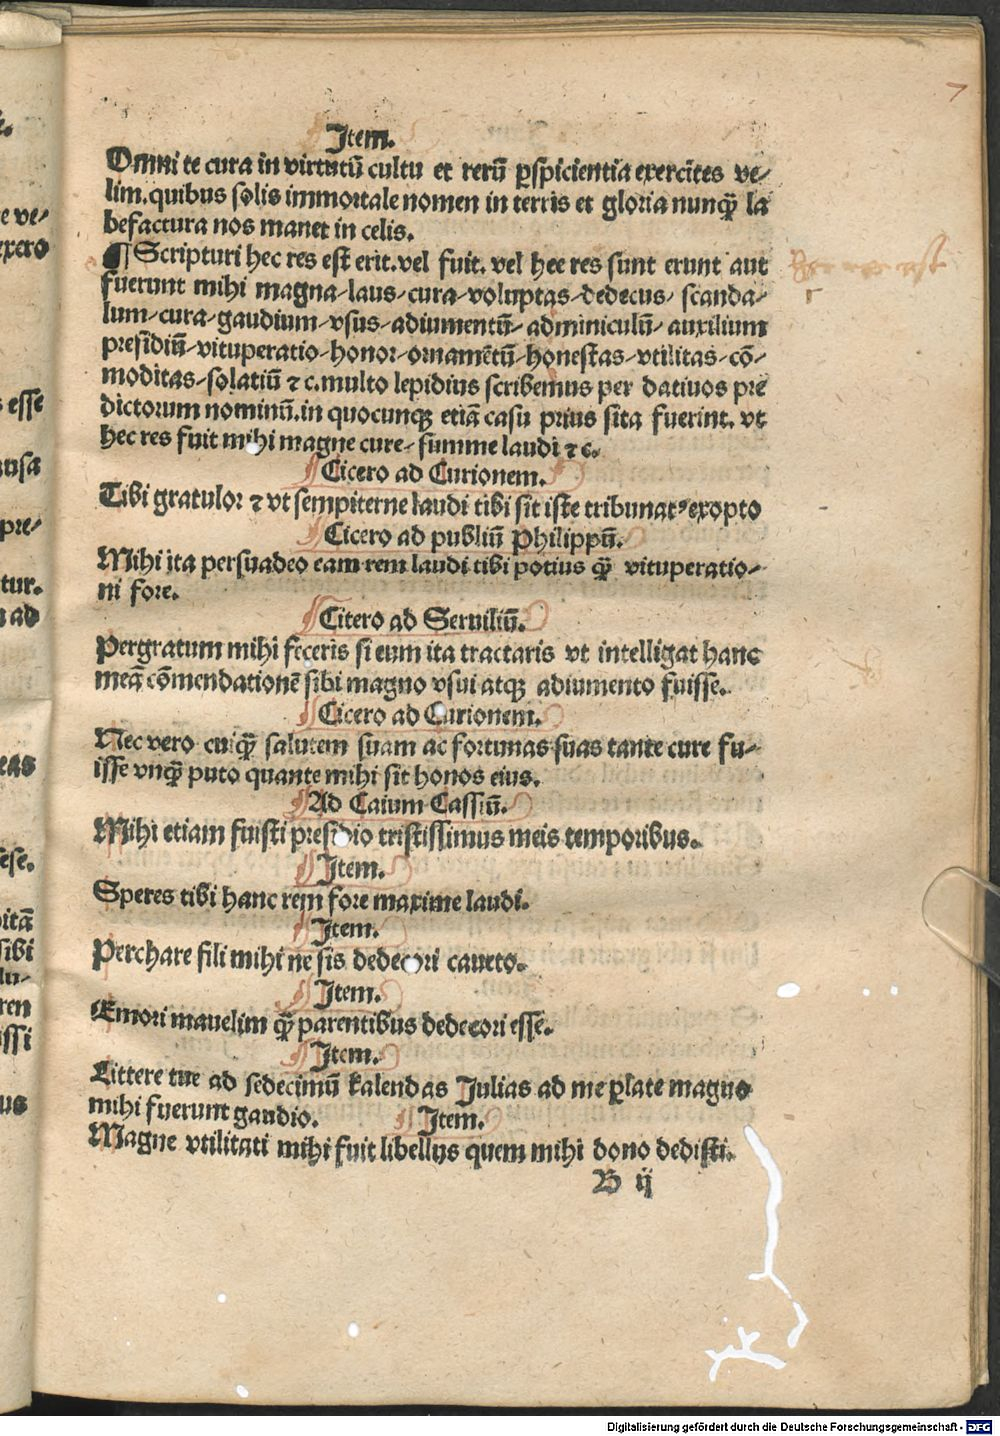 7
Item.
Omni te cura in virtutū cultu et rerū ꝑspicientia exercites ve⸗
lim.quibus solis immortale nomen in terris et gloria nunqꝫ̄ la
befactura nos manet in celis.
¶ Scripturi hec res est erit.vel fuit. vel hee res sunt erunt aut
fuerunt mihi magna⸗laus⸗cura⸗voluptas⸗dedecus⸗ scanda⸗
lum⸗cura⸗gaudium⸗vsus⸗adiumentū⸗ adminiculū⸗ auxilium
presidiū⸗vituperatio⸗honor⸗ornamētū⸗honestas⸗vtilitas⸗cō⸗
moditas⸗solatiū ⁊ c.multo lepidius scribemus per datiuos pre
dictorum nominū.in quocunqꝫ etiā casu prius sita fuerint. vt
hec res fuit mihi magne cure⸗ summe laudi ⁊ c.
¶ Cicero ad Curionem.
Tibi gratulor ⁊ vt sempiterne laudi tibi sit iste tribunatꝰ exopto
¶ Cicero ad publiū Philippū.
Mihi ita persuadeo eam rem laudi tibi potius qꝫ̄ vituperatio⸗
ni fore.
¶ Citero ad Seruiliū.
Pergratum mihi feceris si eum ita tractaris vt intelligat hanc
meā cōmendationē sibi magno vsui atqꝫ adiumento fuisse.
¶ Cicero ad Curionem.
Nec vero cuiqꝫ̄ salutem suam ac fortunas suas tante cure fu⸗
isse vnqꝫ̄ puto quante mihi sit honos eius.
¶ Ad Caium Cassiū.
Mihi etiam fuisti presidio tristissimus meis temporibus.
¶ Item.
Speres tibi hanc rem fore maxime laudi.
¶ Item.
Perchare fili mihi ne sis dedecori caueto.
¶ Item.
Emori mauelim qꝫ̄ parentibus dedecori esse.
¶ Item.
Littere tue ad sedecimū kalendas Julias ad me ꝑlate magno
mihi fuerunt gaudio. ¶ Item.
Magne vtilitati mihi fuit libellus quem mihi dono dedisti.
B ij
Digitalisierung gefördert durch die Deutsche Forschungsgemeinschaft - DFG